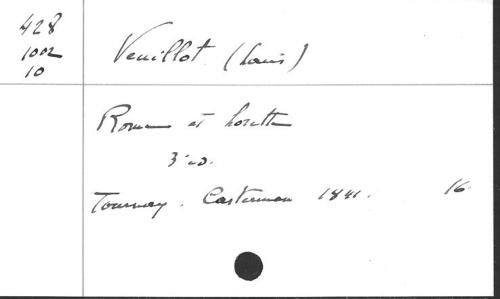 428
1002
10
Veuillot (Louis)
Rome et Lorette
3e éd.
Tournay. Casterman 1841. 16